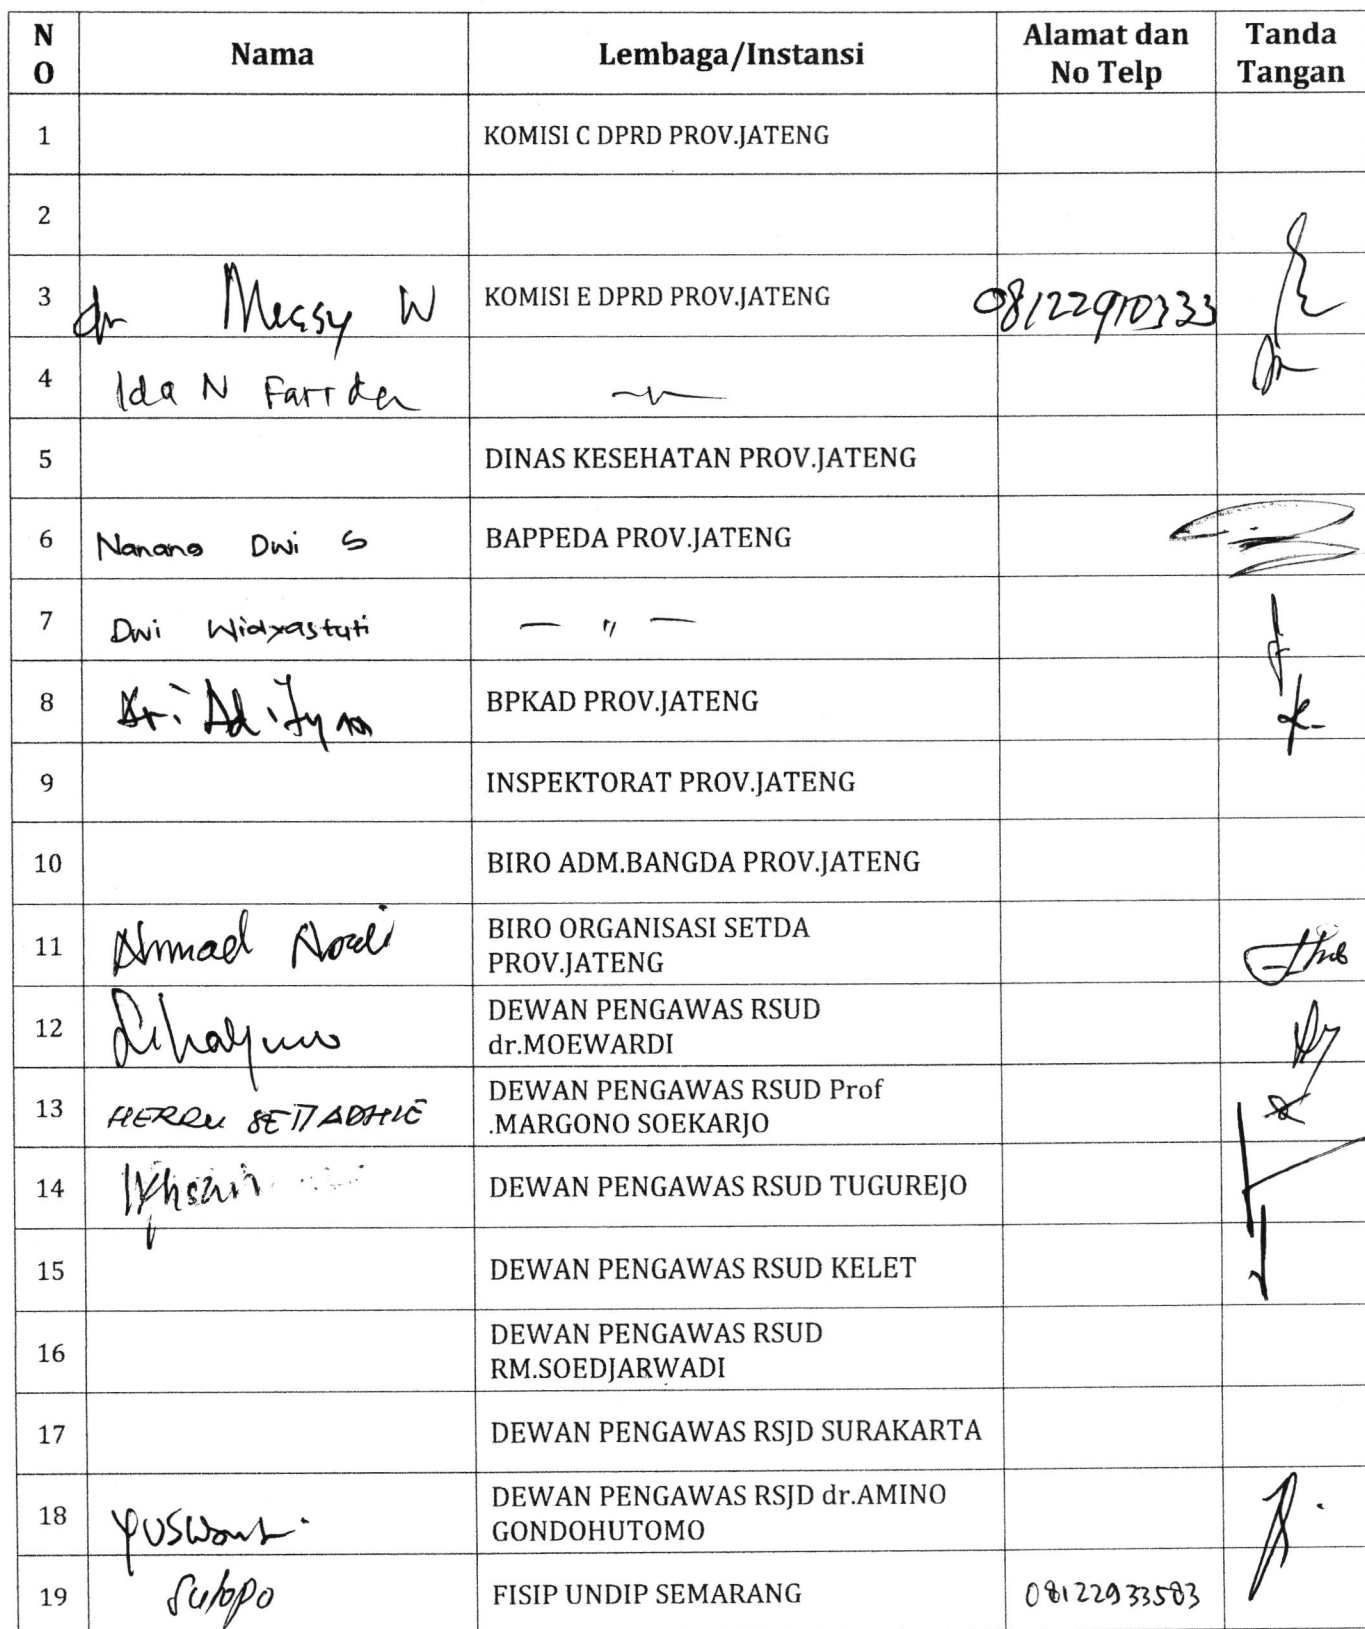 N
O
Nama
Lembaga/Instansi
Alamat dan
No Telp
Tanda
Tangan
1
KOMISI C DPRD PROV.JATENG
2
3
dr Messy W
KOMISI E DPRD PROV.JATENG
08122910333
4
Ida N Farida
5
DINAS KESEHATAN PROV.JATENG
6
Nanang Dwi S
BAPPEDA PROV.JATENG
7
Dwi Widyastuti
— 〃 —
8
Ari Aditya
BPKAD PROV.JATENG
9
INSPEKTORAT PROV.JATENG
10
BIRO ADM.BANGDA PROV.JATENG
11
Ahmad
BIRO ORGANISASI SETDA
PROV.JATENG
12
DEWAN PENGAWAS RSUD
dr.MOEWARDI
13
HERRU SETIADHIE
DEWAN PENGAWAS RSUD Prof
.MARGONO SOEKARJO
14
DEWAN PENGAWAS RSUD TUGUREJO
15
DEWAN PENGAWAS RSUD KELET
16
DEWAN PENGAWAS RSUD
RM.SOEDJARWADI
17
DEWAN PENGAWAS RSJD SURAKARTA
18
DEWAN PENGAWAS RSJD dr.AMINO
GONDOHUTOMO
19
Sutopo
FISIP UNDIP SEMARANG
08122933583